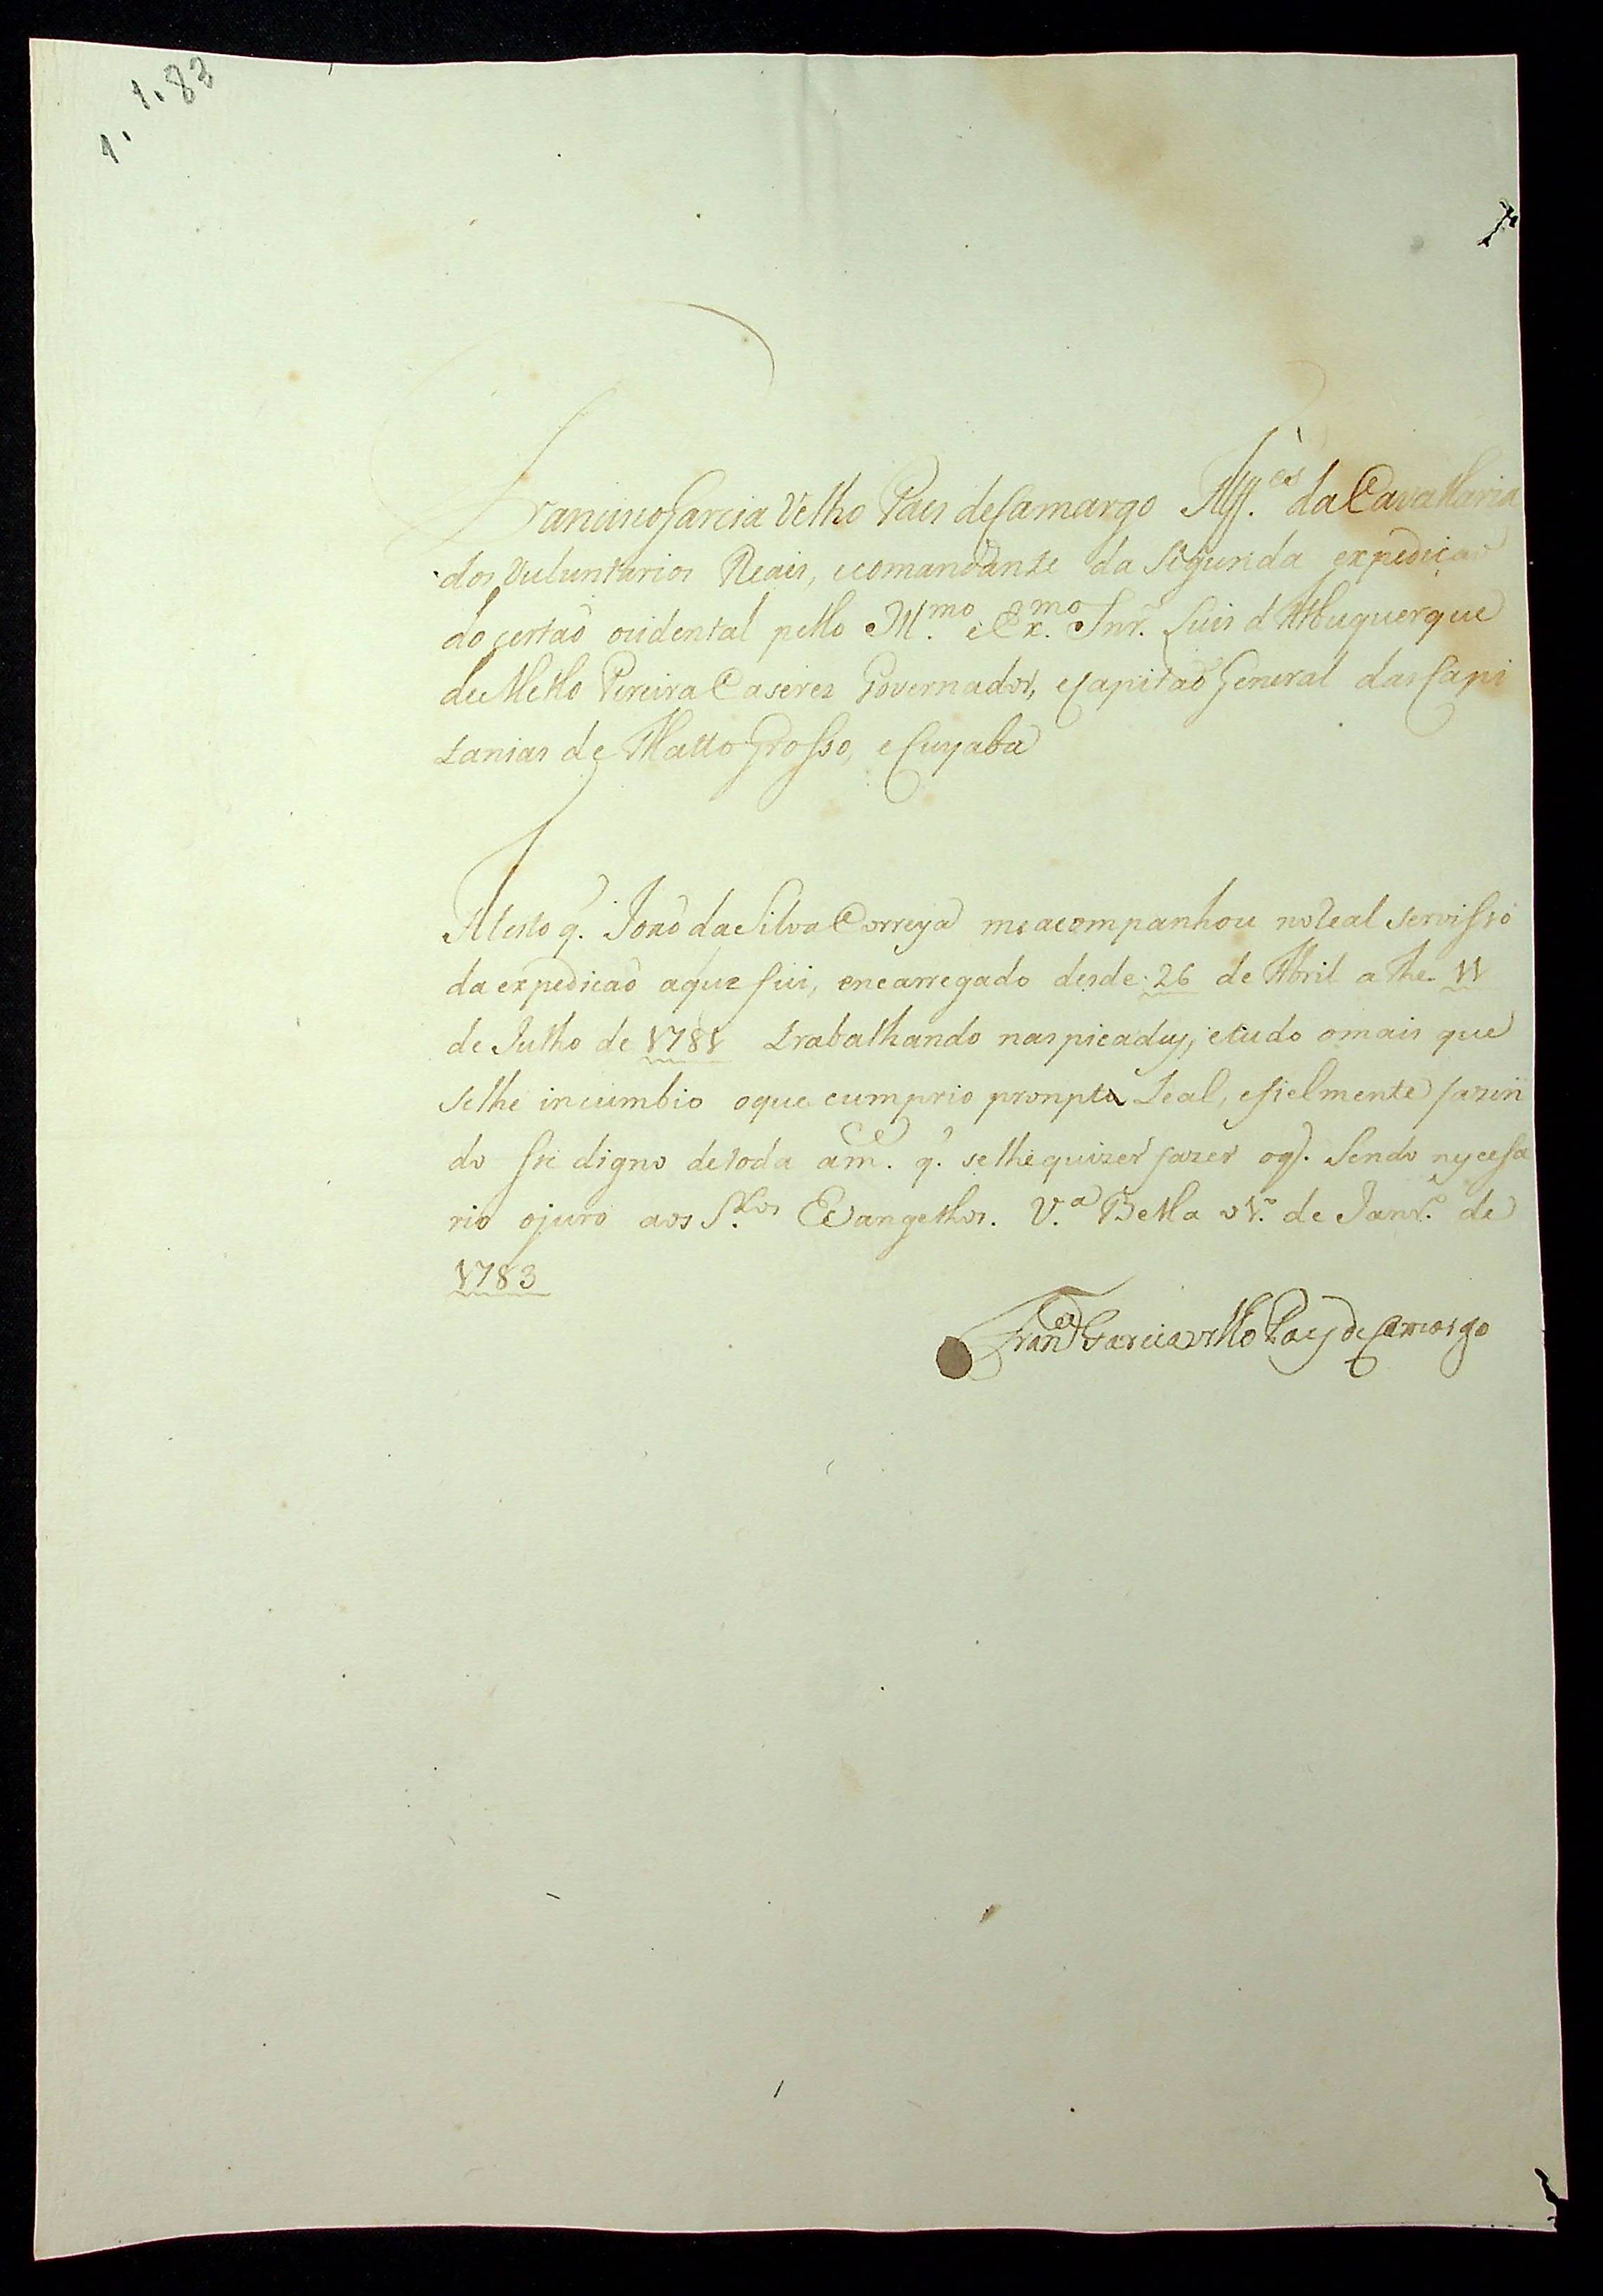 1.1.83
Francisco Garcia Velho Pais de Camargo Alff.es da Cavallaria
dos Vuluntarios Reais, e comandante da Segunda expediçaõ
do certaõ ocidental pello Ill.mo e Ex.mo Snr. Luis d'Albuquerque
de Mello Pereira Caseres Governador, e Capitaõ General das Capi
tanias de Matto Grosso, e Cuyaba
Atesto q. Joaõ da Silva Correya me acompanhou no Real servisso
da expedicaõ a que fui, encarregado desde 26 de Abril athe 11
de Julho de 1781 trabalhando nas picadas, e tudo o mais que
se lhe incumbio o que cumprio prompta Leal, e fielmente fazen
do sse digno de toda a m.ce q. se lhe quizer fazer o q. Sendo nycesa
rio o juro aos S.tos Evangelhos. V.a Bella o 1.o de Janr.o de
1783
Fran.co Garcia velho Paes de Camargo